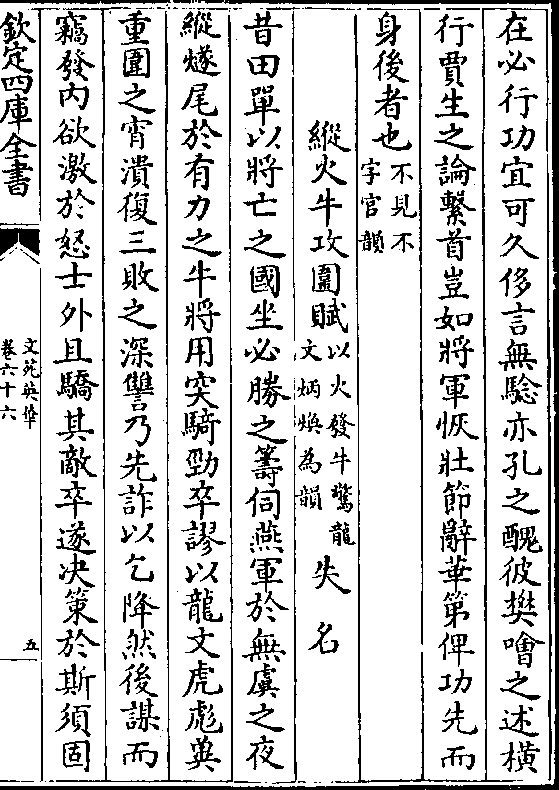 在必行功宜可久侈言無騐亦孔之醜彼樊噲之述橫
行賈生之論繫首豈如將軍恢壯節辭華第俾功先而
身後者也不見不
字官韻
縱火牛攻圍賦以火發牛驚龍
文炳煥為韻
失名
昔田單以將亡之國坐必勝之籌伺燕軍於無虞之夜
縱燧尾於有力之牛將用突騎勁卒謬以龍文虎彪與
重圍之宵潰復三敗之深讐乃先詐以乞降然後謀而
竊發內欲激於怒士外且驕其敵卒遂決策於斯須固
欽定四庫全書
文苑英華
卷六十六
五